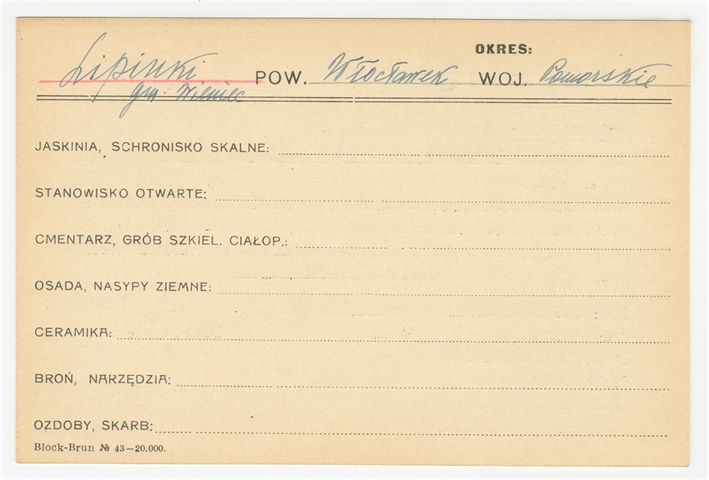 OKRES:
Lipinki POW. Włocławek WOJ. Pomorskie
gm. Wieniec
JASKINIA, SCHRONISKO SKALNE:
STANOWISKO OTWARTE:
CMENTARZ, GRÓB SZKIEL. CIAŁOP.:
OSADA, NASYPY ZIEMNE:
CERAMIKA:
BROŃ, NARZĘDZIA:
OZDOBY, SKARB:
Block-Brun № 43—20.000.